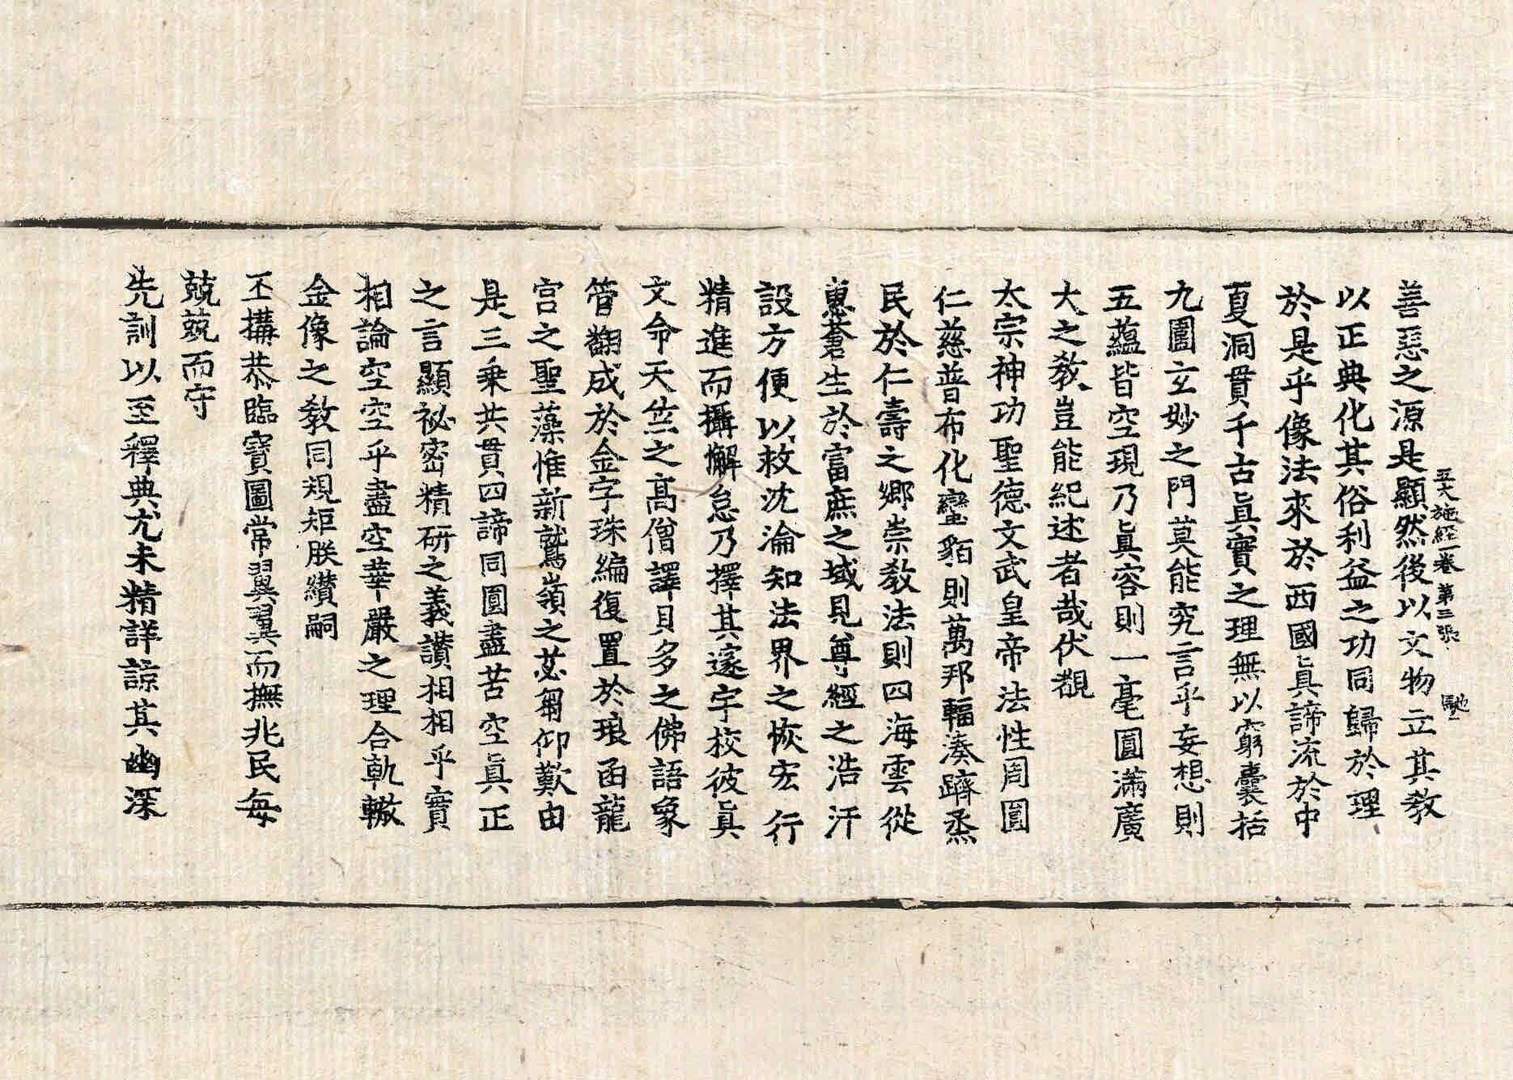 五大施經一卷 第三張 馳
善惡之源是顯然後以文物立其教
以正典化其俗利益之功同歸於理
於是乎像法來於西國真諦流於中
夏洞貫千古真實之理無以窮囊括
九圍玄妙之門莫能究言乎妄想則
五蘊皆空現乃真容則一毫圓滿廣
大之教豈能紀述者哉伏覩
太宗神功聖德文武皇帝法性周圓
仁慈普布化蠻貊則萬邦輻湊躋烝
民於仁壽之鄉崇教法則四海雲從
惠蒼生於富庶之域見尊經之浩汗
設方便以救沈淪知法界之恢宏行
精進而攝懈怠乃擇其邃宇校彼真
文命天竺之高僧譯貝多之佛語象
管翻成於金字珠編復置於琅函龍
宮之聖藻惟新鷲嶺之苾蒭仰歎由
是三乘共貫四諦同圓盡苦空真正
之言顯祕密精研之義讚相相乎實
相論空空乎盡空華嚴之理合軌轍
金像之教同規矩朕纘嗣
丕搆恭臨寶圖常翼翼而撫兆民每
兢兢而守
先訓以至釋典尤未精詳諒其幽深